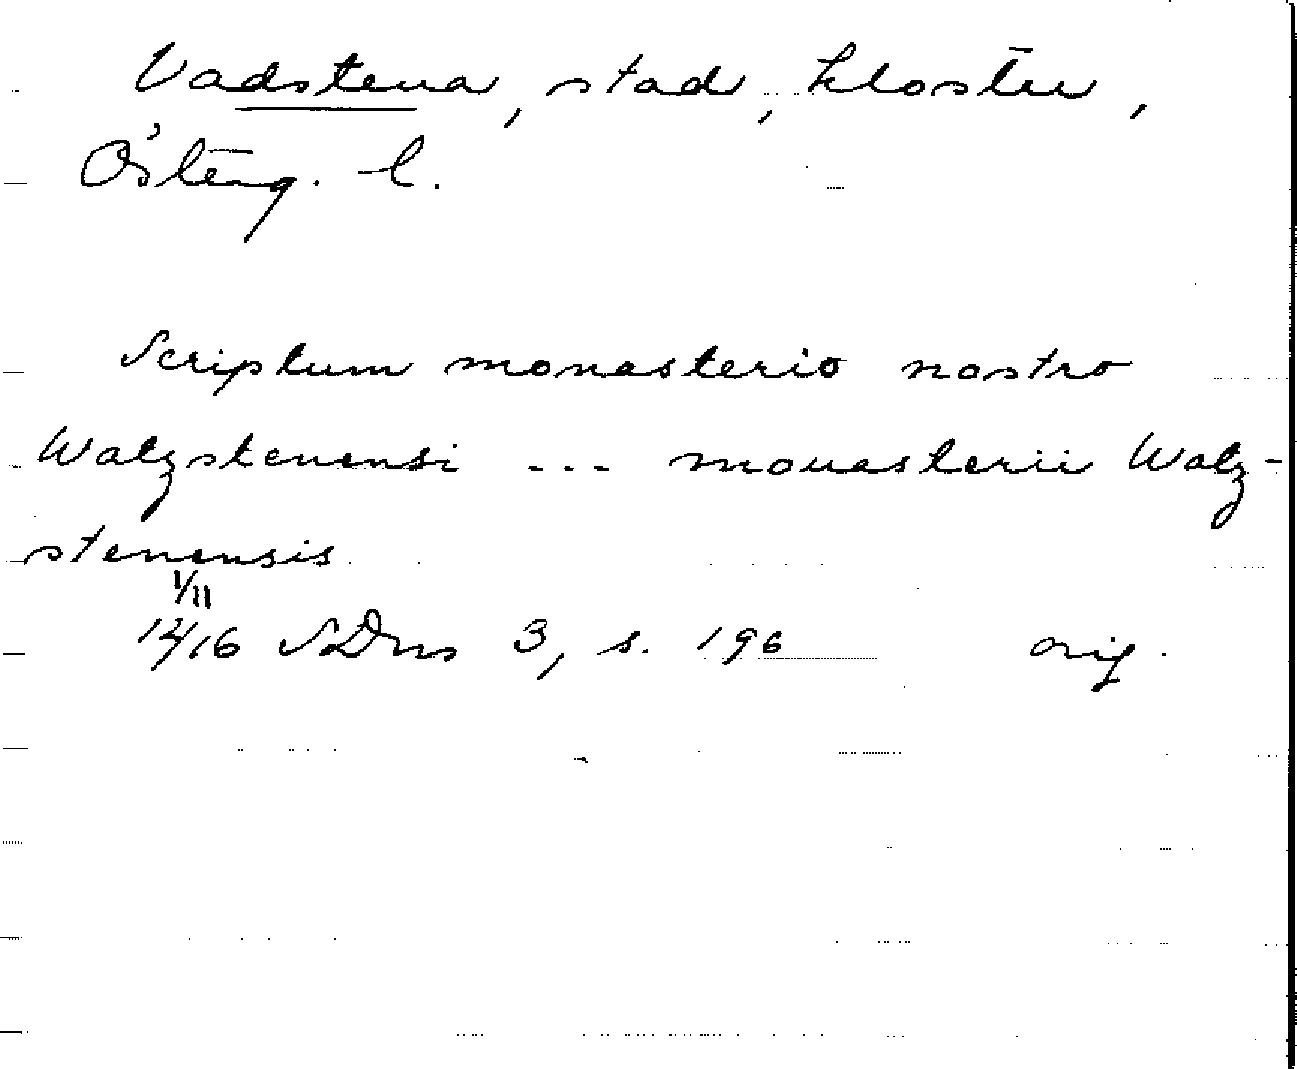 Vadstena, stad, kloster,
Österg. l.
Scriptum monasterio nostro
Watzstenensi --- monasterii Watz-
stenensis
1/11
1416 SDns 3, s. 196 orig.